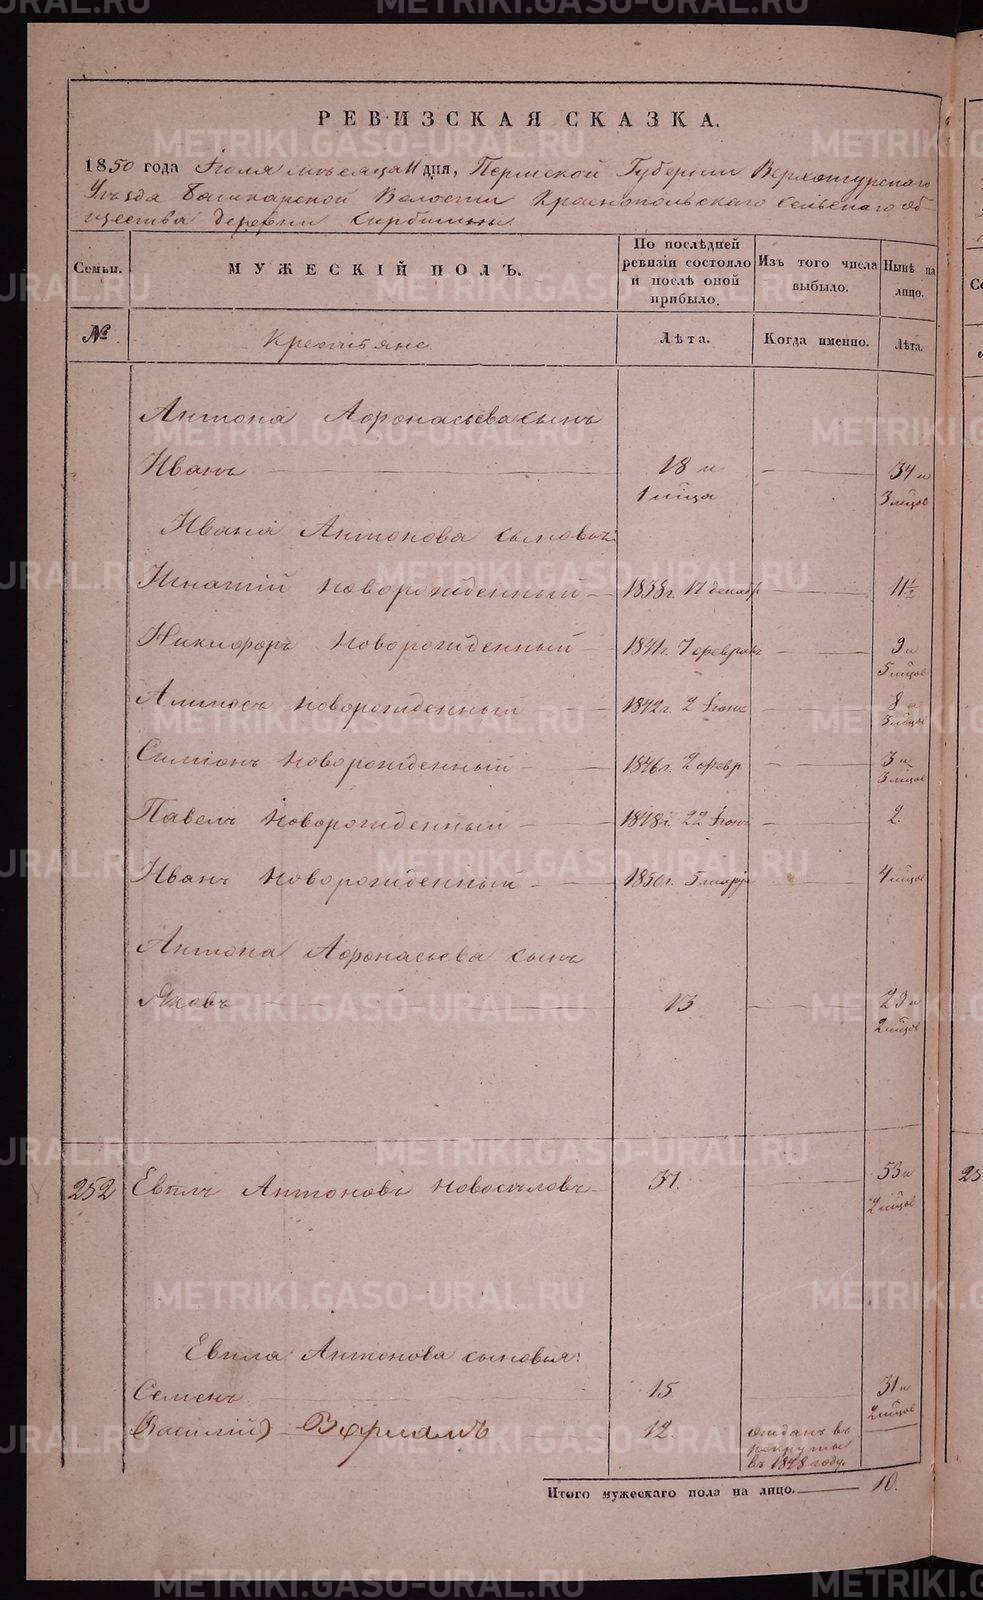 РЕВИЗСКАЯ СКАЗКА.
1850 года Іюля мѣсяца 11 дня, Пермской Губерніи Верхотурскаго
Уѣзда Башкарской Волости Краснопольскаго сельскаго об-
щества деревни
Семьи. МУЖЕСКІЙ ПОЛЪ. По послѣдней ревизіи состояло и послѣ оной прибыло. Изъ того числа выбыло. Нынѣ на лицо.
№ Крестьяне. Лѣта. Когда именно. Лѣта.
Антона Афонасьева сынъ
Иванъ 18 и 1 мѣца 34 и 3 мѣцов
Ивана Антонова сыновья:
Игнатій новорожденный 1838 г. 17 декабр 11½
Никифоръ новорожденный 1841 г. 7 феврал 9 и 5 мѣцов
новорожденный 1842 г. 2 8 и
Симіонъ новорожденный 1846 г. 2 февр 3 и 3 мѣцов
Павелъ новорожденный 1848 г. 22 Іюня 2.
Иванъ новорожденный 1850 г. 5 марта 4 мѣцов
Антона Афонасьева сынъ
Яковъ 13 29 и 2 мѣцов
252 Евплъ Антоновъ Новоселовъ 37. 53 и 2 мѣцов
Евпла Антонова сыновья:
Семенъ 15 31 и 2 мѣцов
(Василій) Варламъ 12. отданъ въ рекруты въ 1848 году.
Итого мужескаго пола на лицо. 10.
25
METRIKI.GASO-URAL.RU